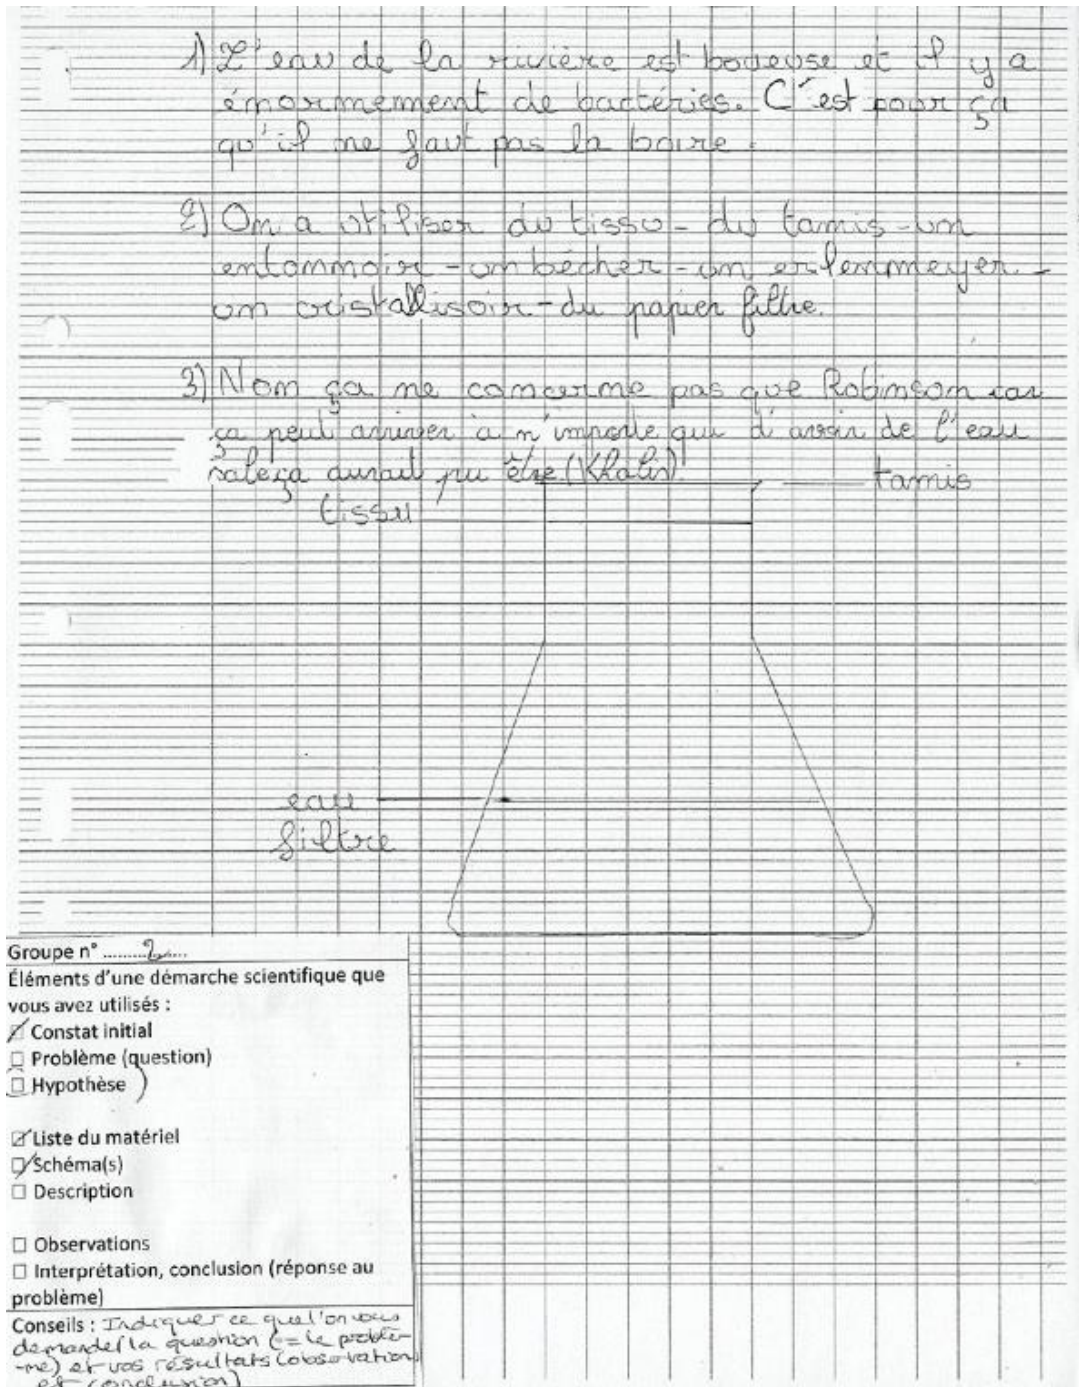 1) L'eau de la rivière est boueuse et il y a
énormément de bactéries. C'est pour ça
qu'il ne faut pas la boire.
2) On a utiliser du tissu - du tamis - un
entonnoir - un bécher - un erlenmeyer -
un cristallisoir - du papier filtre.
3) Non ça ne concerne pas que Robinson car
ça peut arriver à n'importe qui d'avoir de l'eau
sale ça aurait pu être (Khalis)
tamis
tissu
eau
filtre
Groupe n° 2
Éléments d'une démarche scientifique que
vous avez utilisés :
☑ Constat initial
☐ Problème (question)
☐ Hypothèse )
☑ Liste du matériel
☑ Schéma(s)
☐ Description
☐ Observations
☐ Interprétation, conclusion (réponse au
problème)
Conseils : Indiquer ce que l'on vous
demande (la question (= le problè-
-me) et vos résultats (observation
et conclusion)